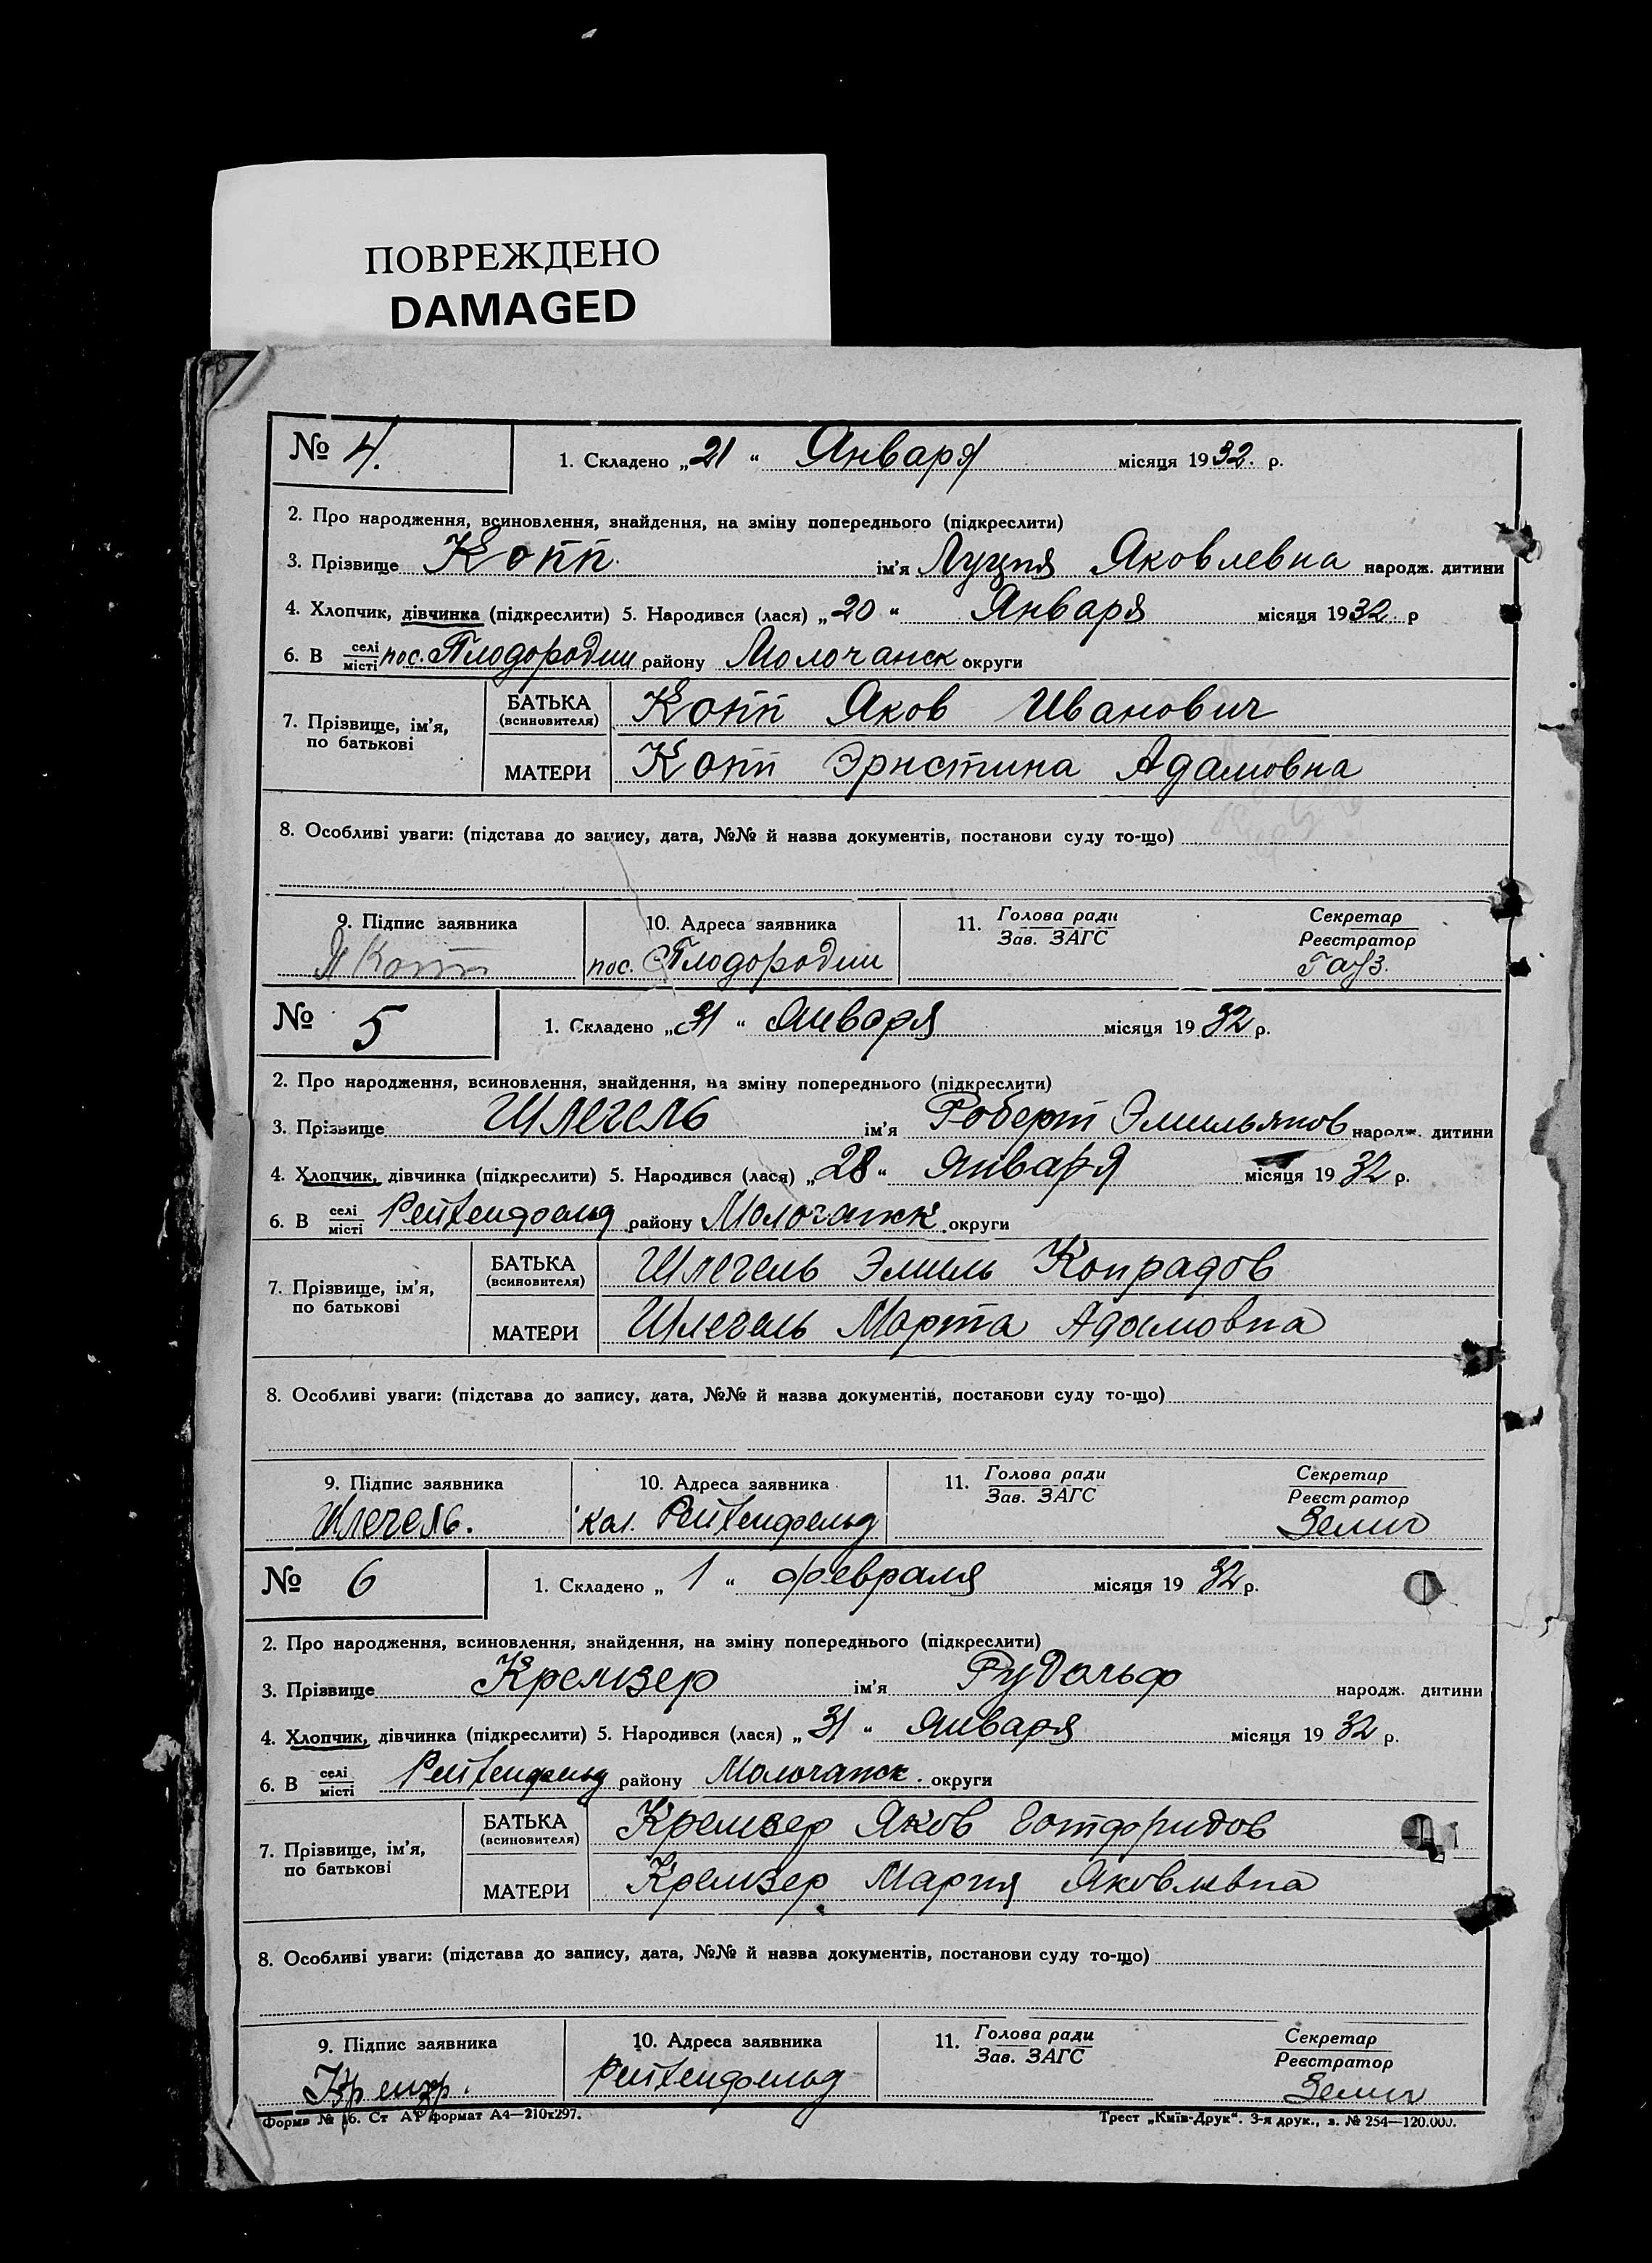 ПОВРЕЖДЕНО
DAMAGED
№ 4. 1. Складено „21“ Января місяця 1932. р.
2. Про народження, всиновлення, знайдення, на зміну попереднього (підкреслити)
3. Прізвище Копп ім'я Луция Яковлевна народж. дитини
4. Хлопчик, дівчинка (підкреслити) 5. Народився (лася) „20“ Января місяця 1932. р
6. В селі/місті пос. Плодородии району Молочанск округи
7. Прізвище, ім'я, по батькові БАТЬКА (всиновителя) Копп Яков Иванович
МАТЕРИ Копп Эрнстина Адамовна
8. Особливі уваги: (підстава до запису, дата, №№ й назва документів, постанови суду то-що)
9. Підпис заявника 10. Адреса заявника 11. Голова ради Секретар
Зав. ЗАГС Реєстратор
Я Копп пос. Плодородии Гауз.
№ 5 1. Складено „31“ Января місяця 1932 р.
2. Про народження, всиновлення, знайдення, на зміну попереднього (підкреслити)
3. Прізвище Шлегель ім'я Роберт Эмильянов народж. дитини
4. Хлопчик, дівчинка (підкреслити) 5. Народився (лася) „28“ Января місяця 1932 р.
6. В селі/місті Рейхенфельд району Молочанск. округи
7. Прізвище, ім'я, по батькові БАТЬКА (всиновителя) Шлегель Эмиль Конрадов
МАТЕРИ Шлегель Марта Адамовна
8. Особливі уваги: (підстава до запису, дата, №№ й назва документів, постанови суду то-що)
9. Підпис заявника 10. Адреса заявника 11. Голова ради Секретар
Зав. ЗАГС Реєстратор
Шлегель. Кол. Рейхенфельд
№ 6 1. Складено „1“ февраля місяця 1932 р.
2. Про народження, всиновлення, знайдення, на зміну попереднього (підкреслити)
3. Прізвище Кремзер ім'я Рудольф народж. дитини
4. Хлопчик, дівчинка (підкреслити) 5. Народився (лася) „31“ Января місяця 1932 р.
6. В селі/місті Рейхенфельд району Молочанск. округи
7. Прізвище, ім'я, по батькові БАТЬКА (всиновителя) Кремзер Яков Готфридов
МАТЕРИ Кремзер Мария Яковлевна
8. Особливі уваги: (підстава до запису, дата, №№ й назва документів, постанови суду то-що)
9. Підпис заявника 10. Адреса заявника 11. Голова ради Секретар
Зав. ЗАГС Реєстратор
Рейхенфельд
Форма № 16. Ст А1 формат А4—210х297. Трест „Київ-Друк“. 3-я друк., з. № 254—120.000.